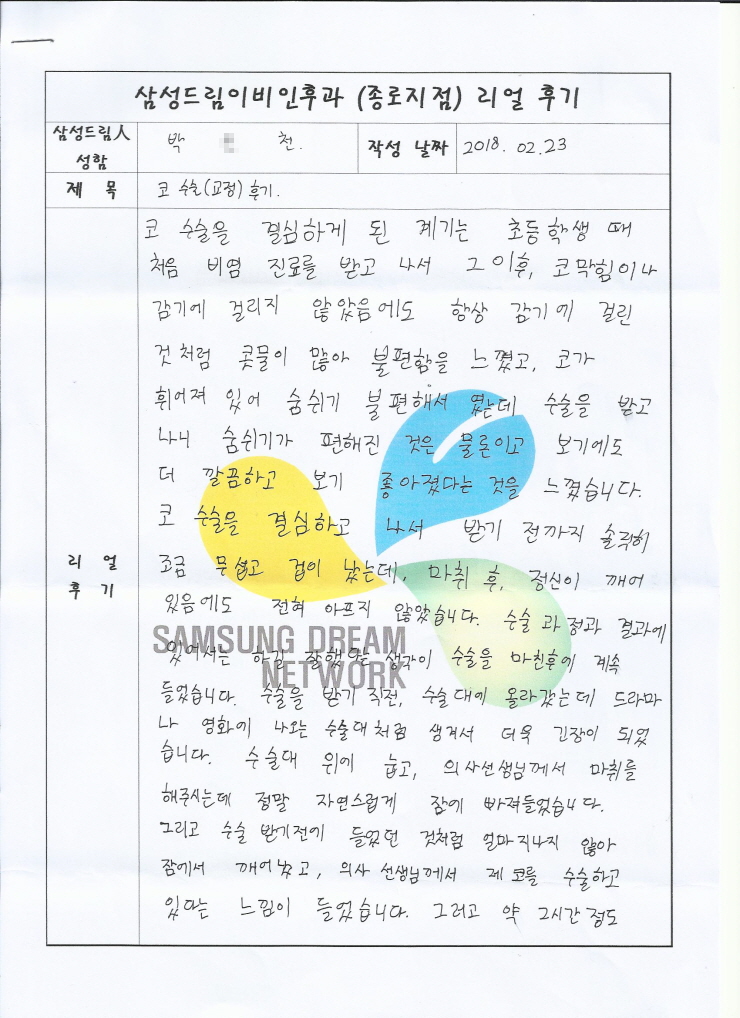 삼성드림이비인후과 (종로지점) 리얼 후기
삼성드림人
성함
박 천.
작성 날짜
2018. 02.23
제 목
코 수술(교정) 후기.
리 얼
후 기
코 수술을 결심하게 된 계기는 초등학생 때
처음 비염 진료를 받고 나서 그 이후, 코막힘이나
감기에 걸리지 않았음에도 항상 감기에 걸린
것처럼 콧물이 많아 불편함을 느꼈고, 코가
휘어져 있어 숨쉬기 불편해서 였는데 수술을 받고
나니 숨쉬기가 편해진 것은 물론이고 보기에도
더 깔끔하고 보기 좋아졌다는 것을 느꼈습니다.
코 수술을 결심하고 나서 받기 전까지 솔직히
조금 무섭고 겁이 났는데, 마취 후, 정신이 깨어
있음에도 전혀 아프지 않았습니다. 수술 과정과 결과에
있어서는 하길 잘했다는 생각이 수술을 마친후에 계속
들었습니다. 수술을 받기 직전, 수술대에 올라갔는데 드라마
나 영화에 나오는 수술대처럼 생겨서 더욱 긴장이 되었
습니다. 수술대 위에 눕고, 의사선생님께서 마취를
해주시는데 정말 자연스럽게 잠에 빠져들었습니다.
그리고 수술 받기전에 들었던 것처럼 얼마지나지 않아
잠에서 깨어났고, 의사 선생님께서 제 코를 수술하고
있다는 느낌이 들었습니다. 그러고 약 2시간 정도
SAMSUNG DREAM
NETWORK